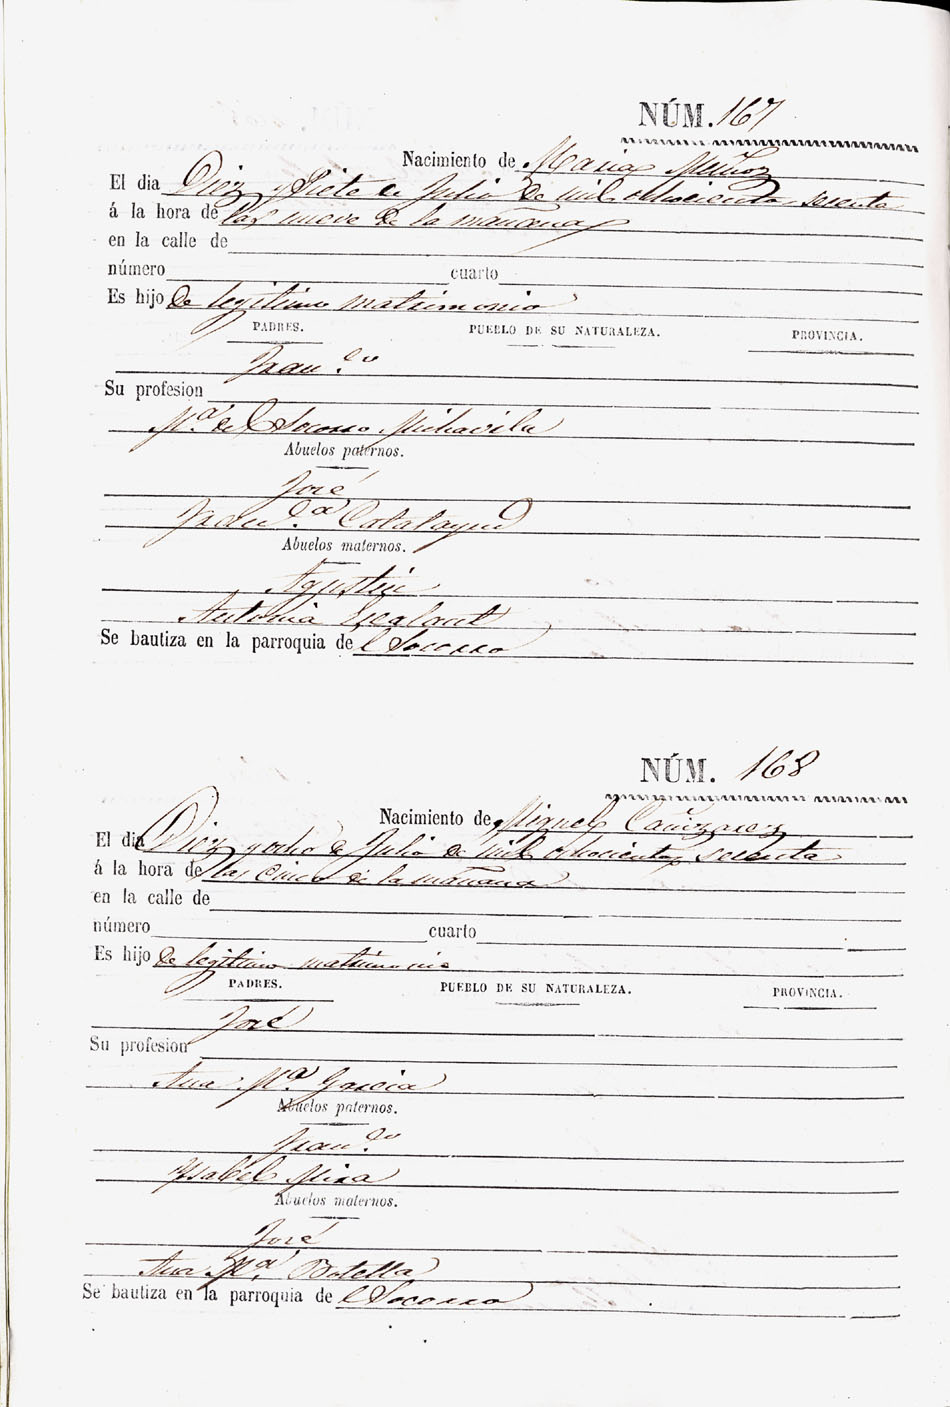 NÚM. 167
Nacimiento de Maria Muñoz
El dia Diez y Siete de Julio de mil ochocientos sesenta
á la hora de las nueve de la mañana
en la calle de
número cuarto
Es hijo de legitimo matrimonio
PADRES. PUEBLO DE SU NATURALEZA. PROVINCIA.
Fran.co
Su profesion
M.a del Socorro Michavila
Abuelos paternos.
José
Fran.ca Calatayud
Abuelos maternos.
Agustin
Antonia
Se bautiza en la parroquia del Socorro
NÚM. 168
Nacimiento de Miguel Cañizarez
El dia Diez y ocho de Julio de mil ochocientos sesenta
á la hora de las cinco de la mañana
en la calle de
número cuarto
Es hijo de legitimo matrimonio
PADRES. PUEBLO DE SU NATURALEZA. PROVINCIA.
José
Su profesion
Ana M.a Garcia
Abuelos paternos.
Fran.co
Ysabel Mira
Abuelos maternos.
José
Ana M.a Botella
Se bautiza en la parroquia de el Socorro